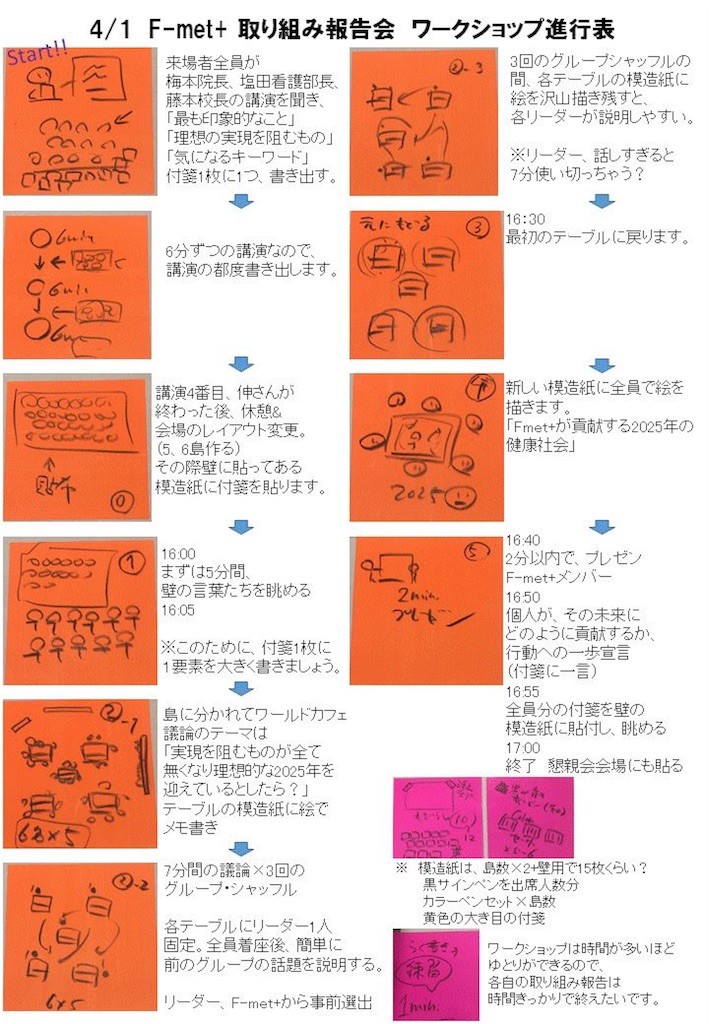 4/1 F-met+ 取り組み報告会 ワークショップ進行表
Start!!
来場者全員が
梅本院長、塩田看護部長、
藤本校長の講演を聞き、
「最も印象的なこと」
「理想の実現を阻むもの」
「気になるキーワード」
付箋1枚に1つ、書き出す。
6min
6min
6min
6分ずつの講演なので、
講演の都度書き出します。
貼布
0
講演4番目、伸さんが
終わった後、休憩&
会場のレイアウト変更。
(5、6島作る)
その際壁に貼ってある
模造紙に付箋を貼ります。
1
16:00
まずは5分間、
壁の言葉たちを眺める
16:05
※このために、付箋1枚に
1要素を大きく書きましょう。
②-1
6名×5
島に分かれてワールドカフェ
議論のテーマは
「実現を阻むものが全て
無くなり理想的な2025年を
迎えているとしたら?」
テーブルの模造紙に絵で
メモ書き
②-2
6×5
7分間の議論×3回の
グループ・シャッフル
各テーブルにリーダー1人
固定。全員着座後、簡単に
前のグループの話題を説明する。
リーダー、F-met+から事前選出
②-3
3回のグループシャッフルの
間、各テーブルの模造紙に
絵を沢山描き残すと、
各リーダーが説明しやすい。
※リーダー、話しすぎると
7分使い切っちゃう?
元にもどる
③
16:30
最初のテーブルに戻ります。
4
2025
新しい模造紙に全員で絵を
描きます。
「Fmet+が貢献する2025年の
健康社会」
⑤
2min.
プレゼン
16:40
2分以内で、プレゼン
F-met+メンバー
16:50
個人が、その未来に
どのように貢献するか、
行動への一歩宣言
(付箋に一言)
16:55
全員分の付箋を壁の
模造紙に貼付し、眺める
17:00
終了 懇親会会場にも貼る
10
12
※ 模造紙は、島数×2+壁用で15枚くらい?
黒サインペンを出席人数分
カラーペンセット×島数
黄色の大き目の付箋
らく書きの
練習
1min.
ワークショップは時間が多いほど
ゆとりができるので、
各自の取り組み報告は
時間きっかりで終えたいです。